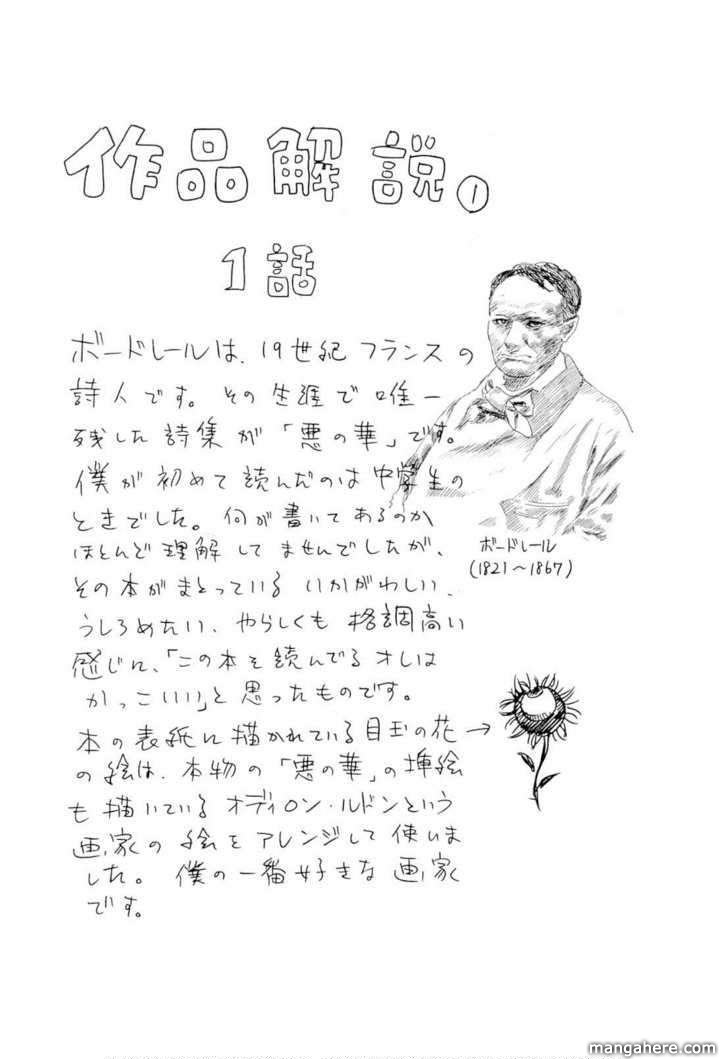 作品解説①
1話
ボードレールは、19世紀フランスの
詩人です。その生涯で唯一
残した詩集が「悪の華」です。
僕が初めて読んだのは中学生の
ときでした。何が書いてあるのか
ほとんど理解してませんでしたが、
その本がまとっているいかがわしい、
うしろめたい、やらしくも格調高い
感じに、「この本を読んでるオレは
かっこいい」と思ったものです。
本の表紙に描かれている目玉の花→
の絵は、本物の「悪の華」の挿絵
も描いているオディロン・ルドンという
画家の絵をアレンジして使いま
した。僕の一番好きな画家
です。
ボードレール
(1821〜1867)
mangahere.com